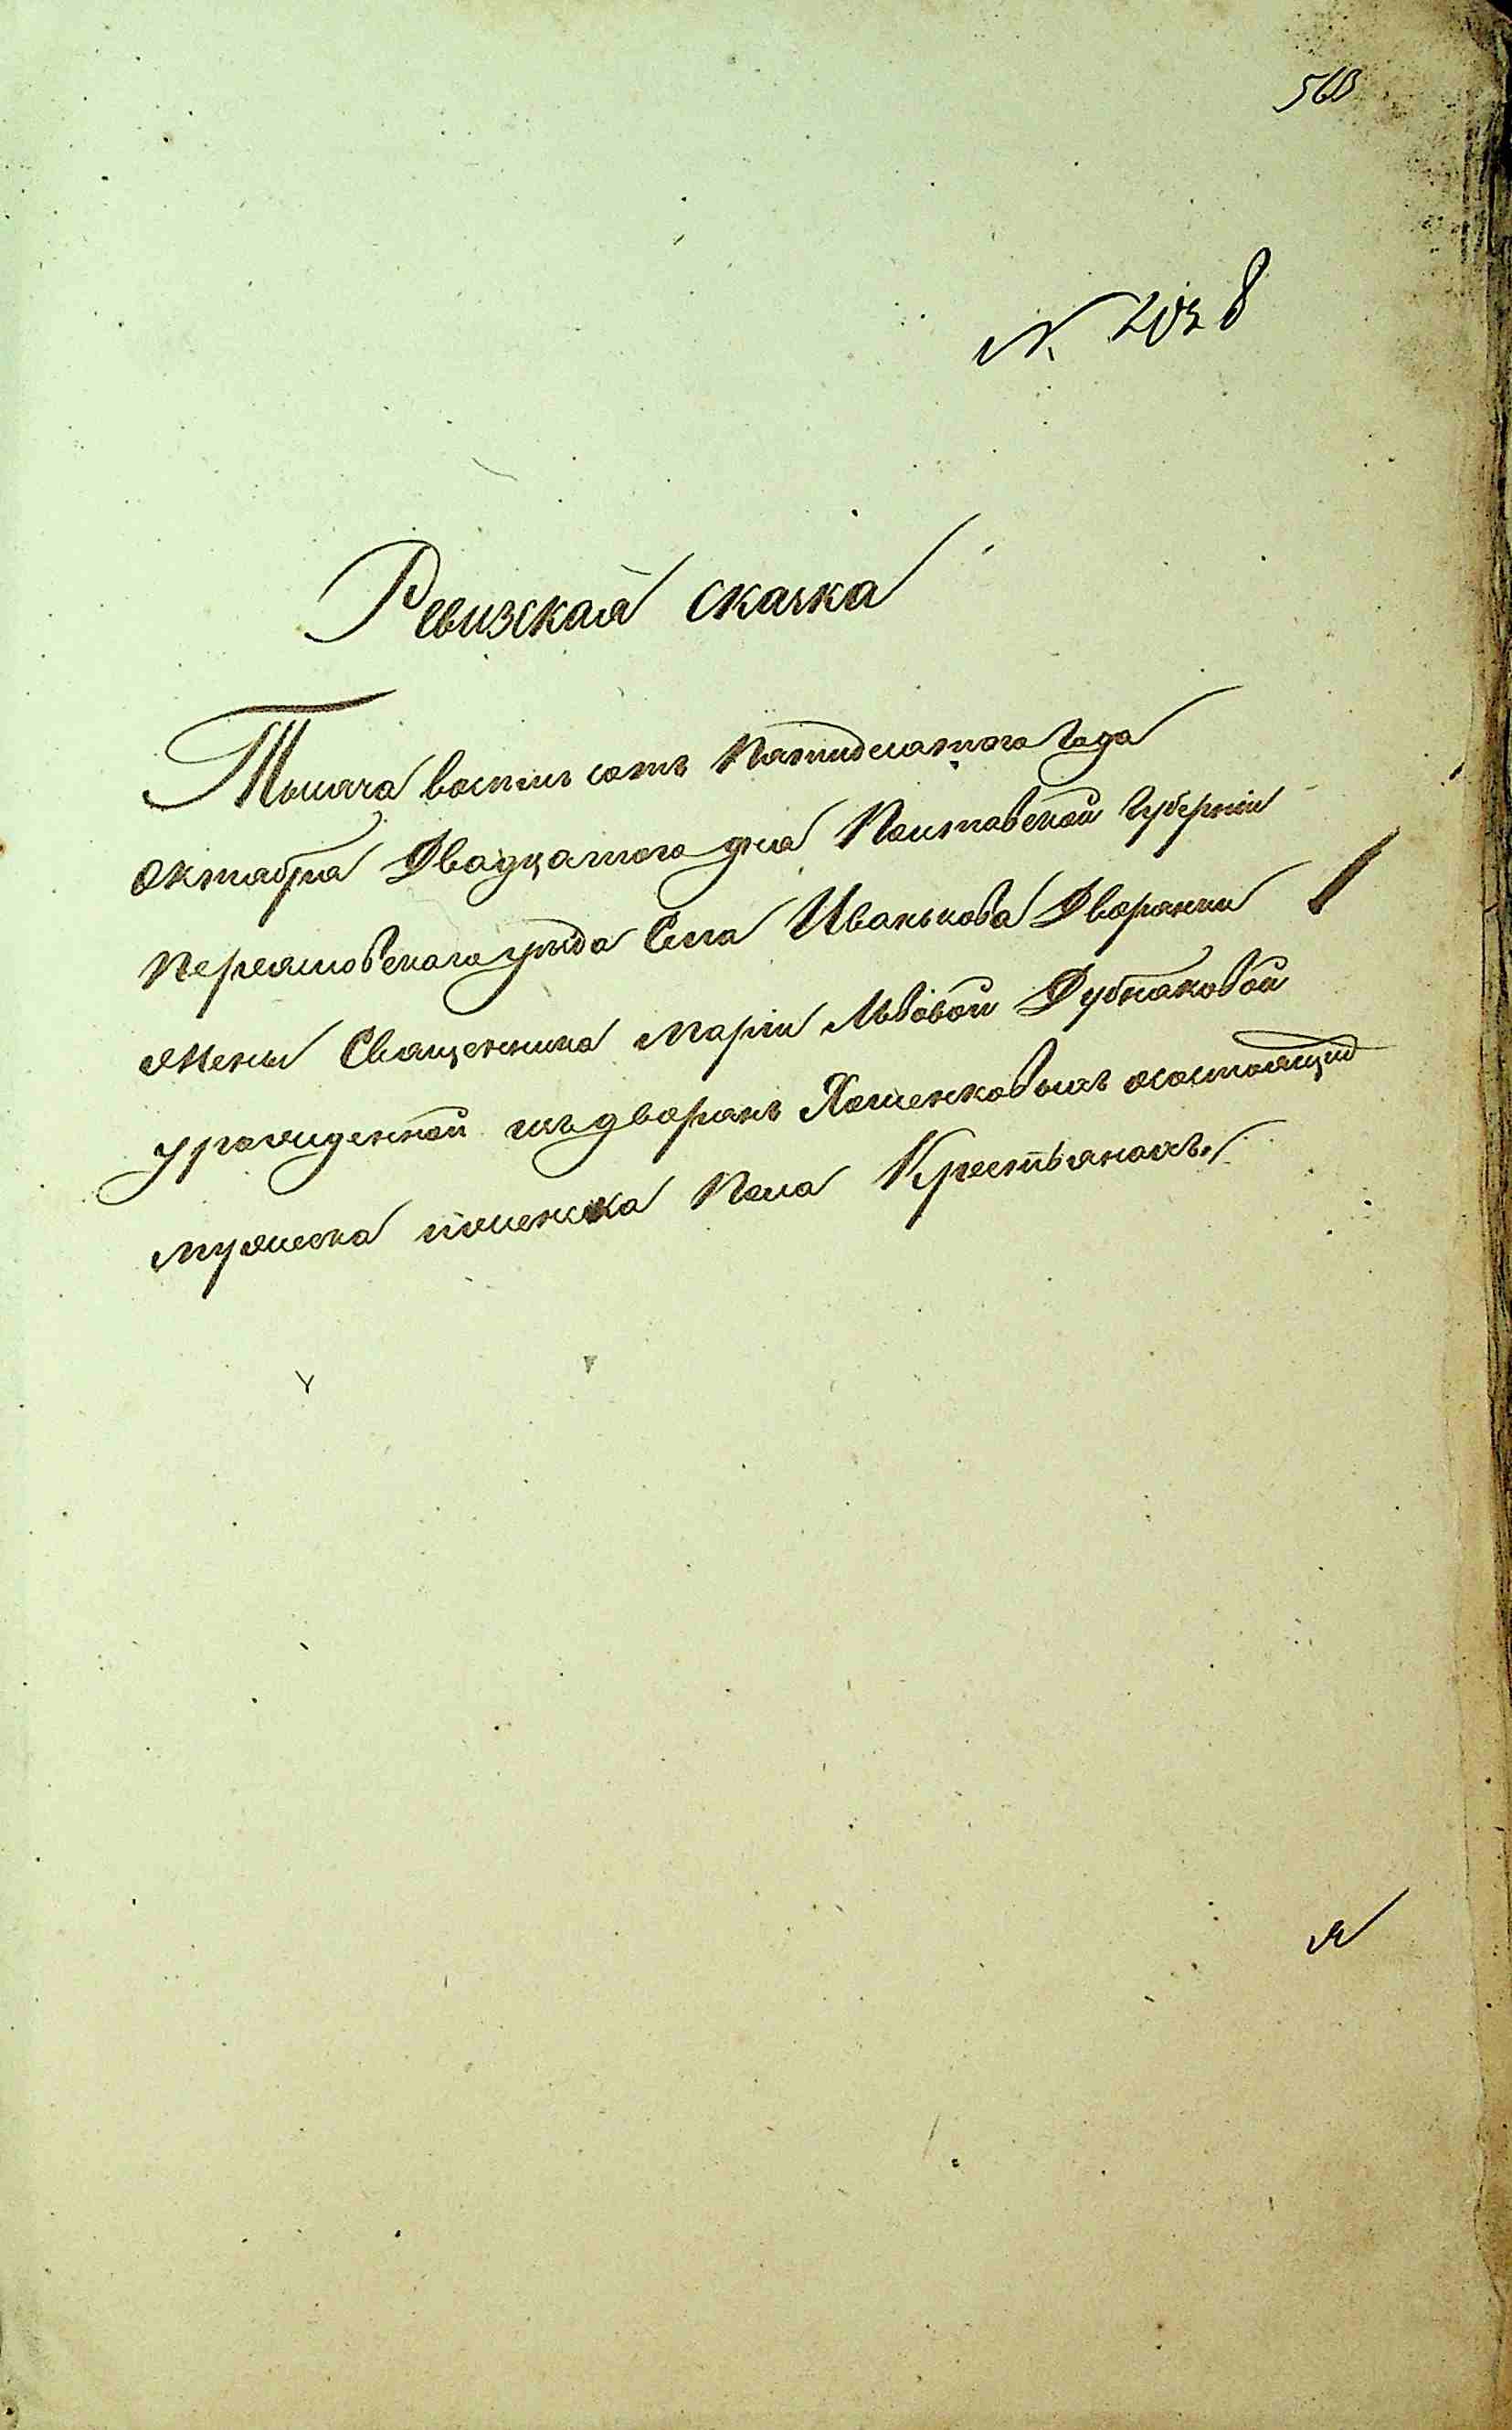 N. 2038
Ревизская скаска
Тысяча восемь сотъ Пятидесятого Года
Октября Двадцатого дня Полтавской Губерніи
Переяславскаго уезда Села Иванькова Дворянки
жены Священника Маріи Львовой Дубняковой
урожденной изъ дворянъ Хоменковыхъ осостоящих
мужеска иженска Пола Крестьянахъ